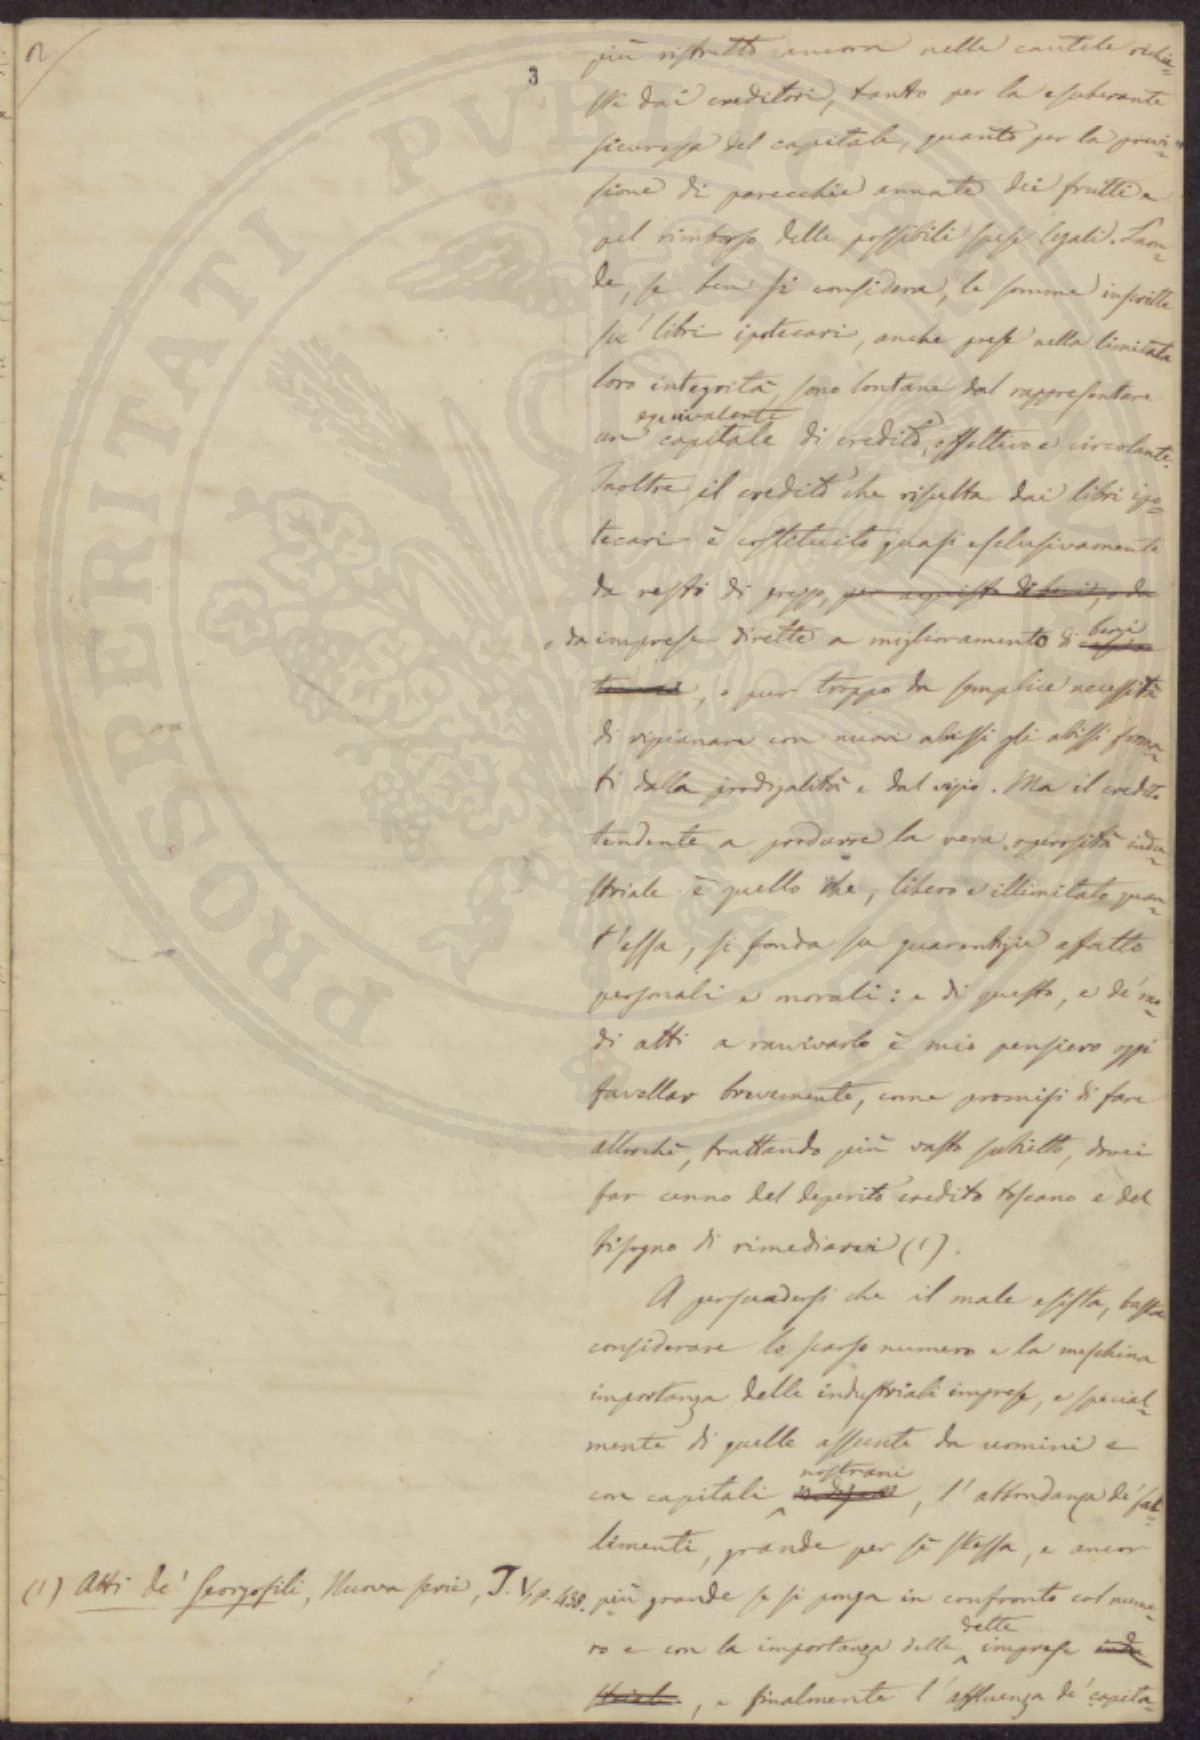 2
3
più ristretto ancora nelle cautele richie=
ste dai creditori, tanto per la esuberante
sicurezza del capitale, quanto per la previ=
sione di parecchie annate dei frutti e
pel rimborso delle possibili spese legali. Laon=
de, se ben si considera, le somme inscritte
su' libri ipotecari, anche prese nella limitata
loro integrità, sono lontane dal rappresentare
equivalente
un capitale di credito, effettivo e circolante.
Inoltre il credito che risulta dai libri ipo=
tecari è costituito quasi esclusivamente
da resti di prezzo, per acquisto di beni, o da
o da imprese dirette a miglioramento di beni
, o pur troppo da semplice necessità
di ripianare con nuovi abissi gli abissi forma=
ti dalla prodigalità e dal vizio. Ma il credito
tendente a produrre la vera operosità indu=
striale è quello che, libero e illimitato quan=
t'essa, si fonda su guarentigie affatto
personali e morali: e di questo, e de' mo=
di atti a ravvivarlo è mio pensiero oggi
favellar brevemente, come promisi di fare
allorchè, trattando più vasto subietto, dovei
far cenno del deperito credito toscano e del
bisogno di rimediarvi (1).
A persuadersi che il male esista, basta
considerare lo scarso numero e la meschina
importanza delle industriali imprese, e special=
mente di quelle assunte da uomini e
nostrani
con capitali , l'abbondanza de' fal=
limenti, grande per sè stessa, e ancor
(1) Atti de' Georgofili, Nuova serie, T. V, p. 438.
più grande se si ponga in confronto col nume=
dette
ro e con la importanza delle imprese indu
striali, e finalmente l'affluenza de' capita=
PROSPERITATI PUBLICAE